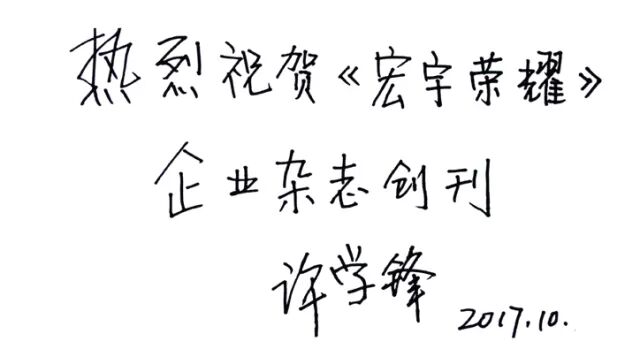 热烈祝贺《宏宇荣耀》
企业杂志创刊
许学锋
2017.10.